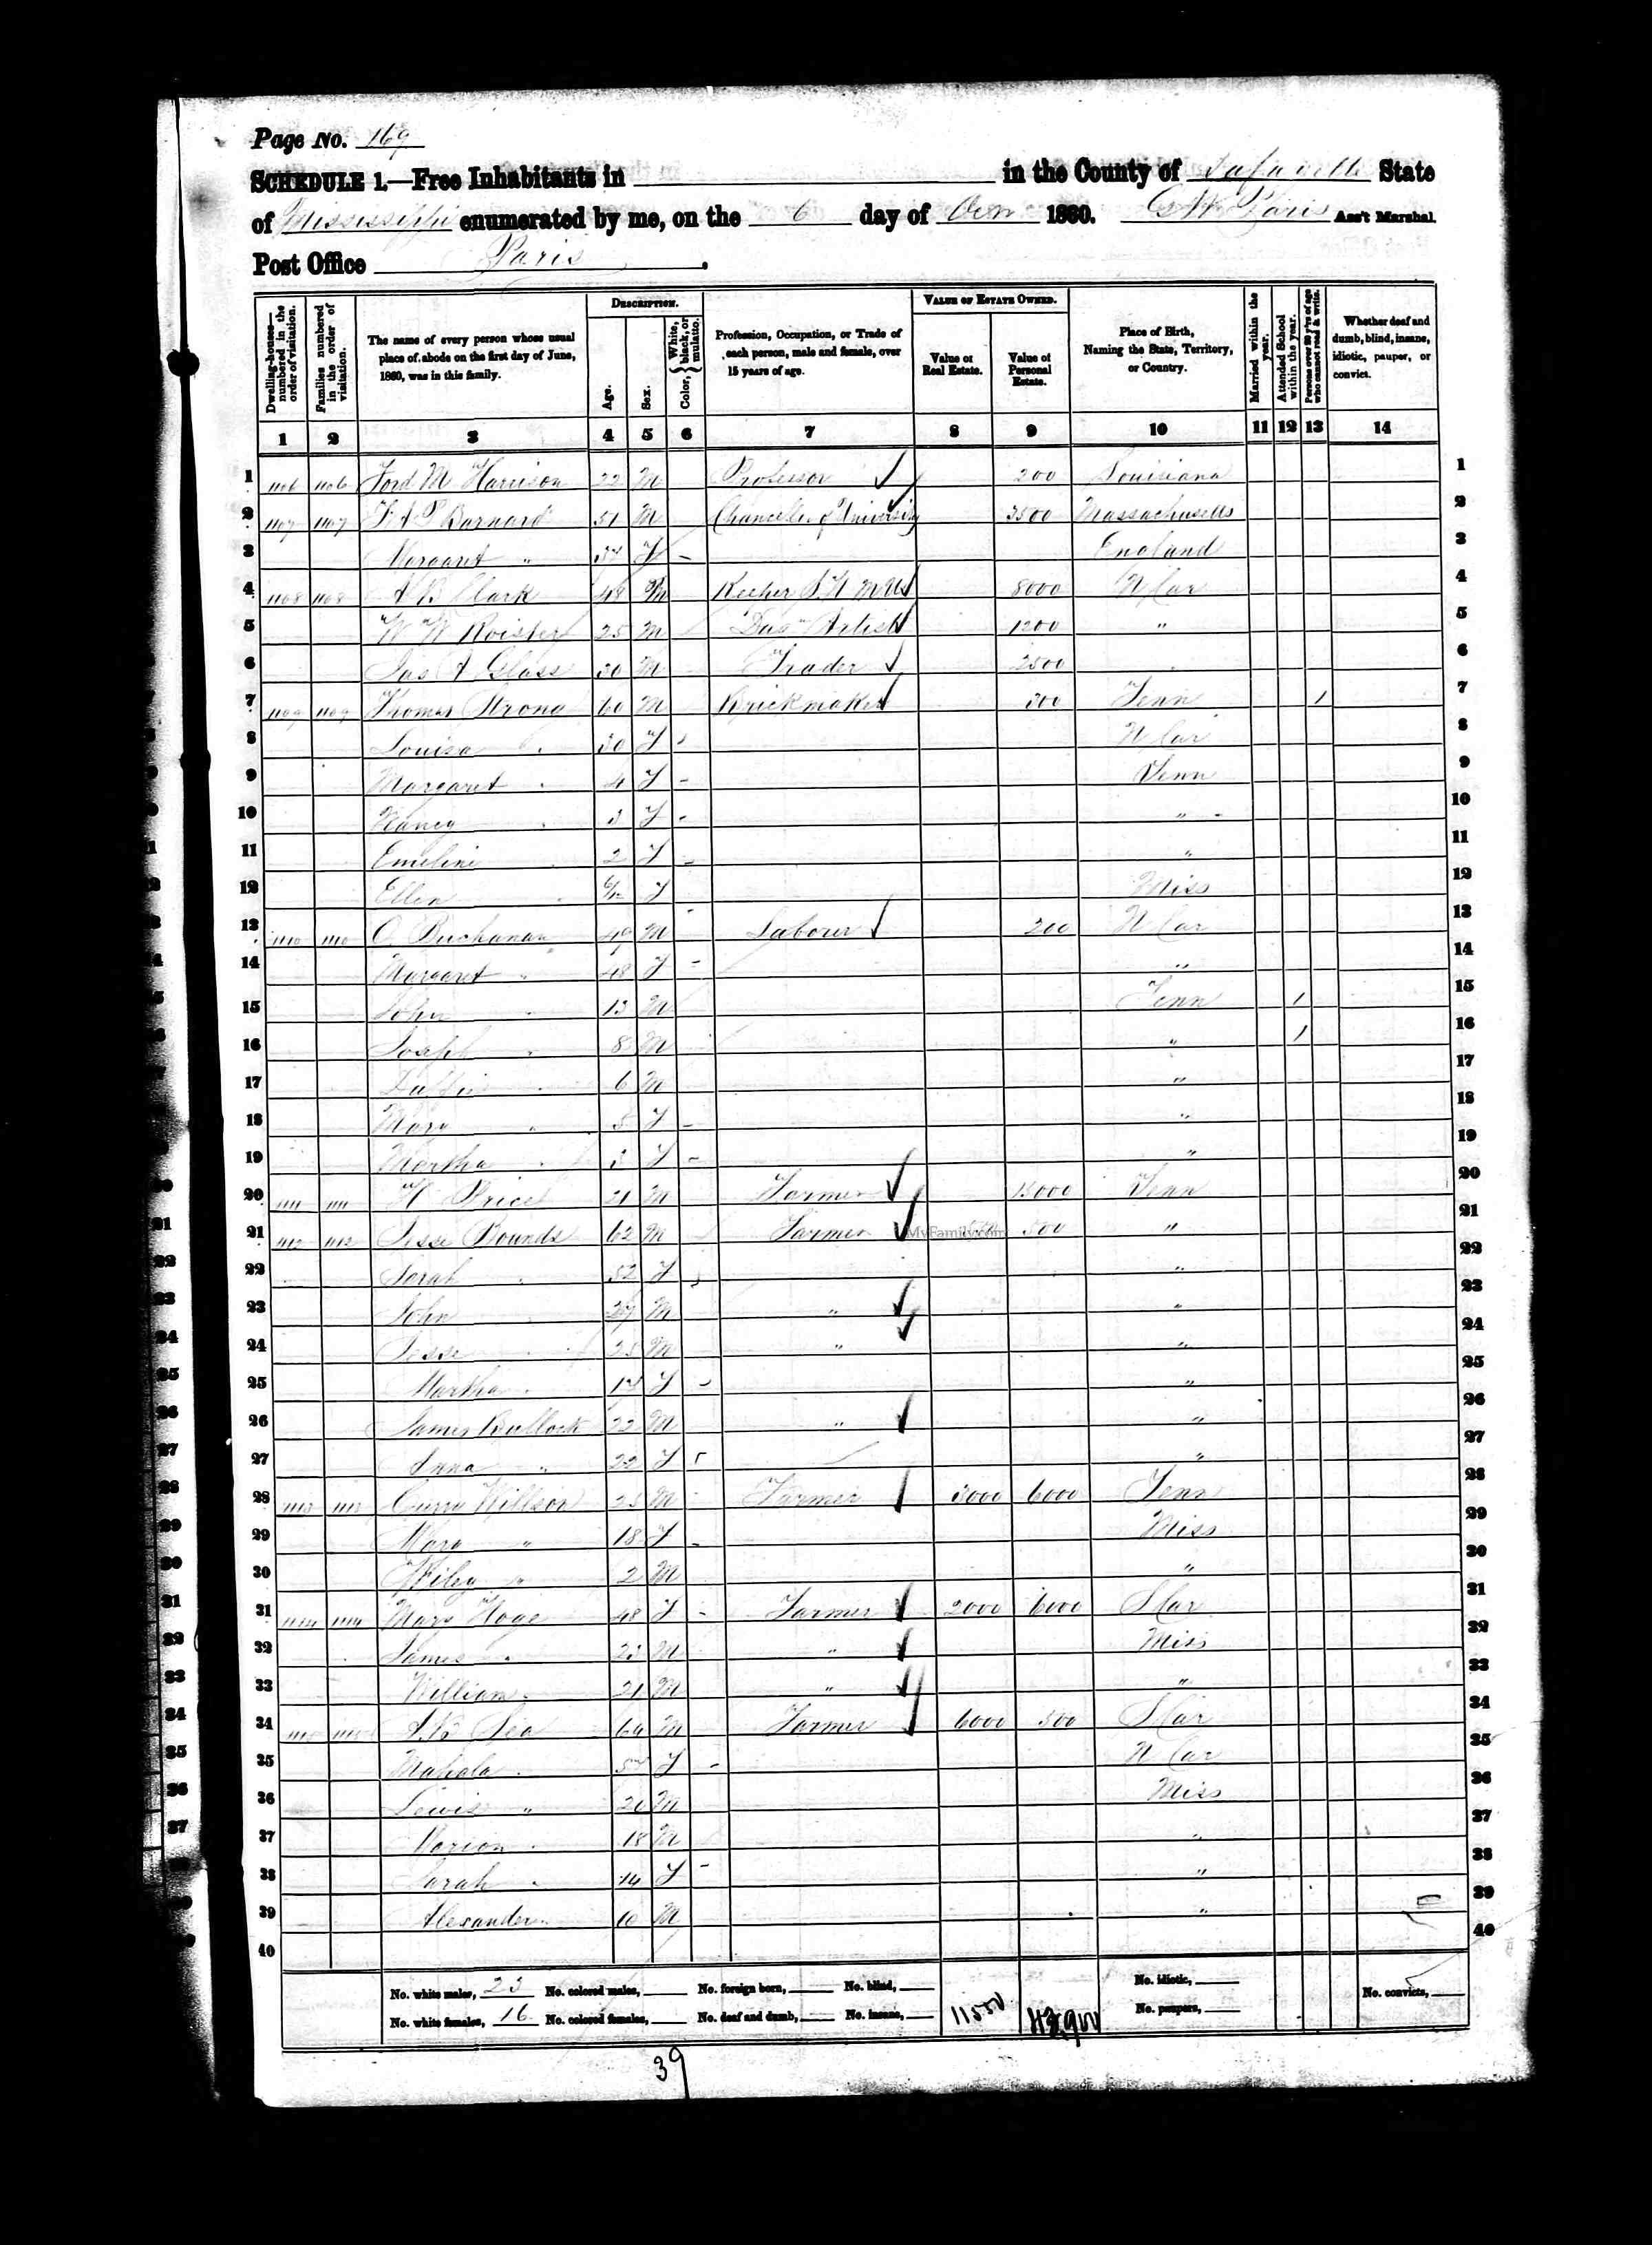 Page No. 169
SCHEDULE 1.—Free Inhabitants in in the County of Lafayette State
of Mississippi enumerated by me, on the 6 day of 1860. Paris Ass't Marshal.
Post Office Paris.
Dwelling-houses—numbered in the order of visitation.
Families numbered in the order of visitation.
The name of every person whose usual place of abode on the first day of June, 1860, was in this family.
DESCRIPTION.
Age.
Sex.
Color, White, black, or mulatto.
Profession, Occupation, or Trade of each person, male and female, over 15 years of age.
VALUE OF ESTATE OWNED.
Value of Real Estate.
Value of Personal Estate.
Place of Birth, Naming the State, Territory, or Country.
Married within the year.
Attended School within the year.
Persons over 20 y'rs of age who cannot read & write.
Whether deaf and dumb, blind, insane, idiotic, pauper, or convict.
1 2 3 4 5 6 7 8 9 10 11 12 13 14
1 1106 1106 Ford M Harrison 22 M Professor 200 Louisiana 1
2 1107 1107 F A P Barnard 51 M Chancellor of University 3500 Massachusetts 2
3 Margaret " F England 3
4 1108 1108 A B Clark 48 M Keeper 8000 N Car 4
5 W W Roister 25 M "Dag" Artist 1200 " 5
6 Jas A Glass 30 M Trader 2500 6
7 1109 1109 Thomas Strong 60 M Brickmaker 300 Tenn 1 7
8 Louisa 30 F N Car 8
9 Margaret 4 F Tenn 9
10 Nancy 3 F " 10
11 Emeline 2 F " 11
12 Ellen F Miss 12
13 1110 1110 O Buchanan 49 M Laborer 200 N Car 13
14 Margaret " 48 F " 14
15 John 13 M Tenn 1 15
16 Joseph " 8 M " 1 16
17 6 M " 17
18 Mary " 5 F " 18
19 Martha 3 F " 19
20 1111 1111 H Price 21 M Farmer 15000 Tenn 20
21 1112 1112 Jesse Bounds 62 M Farmer MyFamily.com 500 " 21
22 Sarah 52 F " 22
23 John 27 M " " 23
24 Jesse 25 M " " 24
25 Martha 17 F " 25
26 James Bullock 22 M " " 26
27 Anna " 22 F " 27
28 1113 1113 Curry Willson 25 M Farmer 3000 6000 Tenn 28
29 Mary " 18 F Miss 29
30 Wiley " 2 M " 30
31 1114 1114 Mary Hoge 48 F Farmer 2000 6000 S Car 31
32 James 23 M " Miss 32
33 William 21 M " " 33
34 1115 1115 Lea M Farmer 6000 500 S Car 34
35 Mahala 57 F N Car 35
36 Lewis " 20 M Miss 36
37 Marion 18 M " 37
38 Sarah 14 F " 38
39 Alexander 10 M " 39
40 40
No. white males, 23 No. colored males, No. foreign born, No. blind, No. idiotic, No. convicts,
No. white females, 16 No. colored females, No. deaf and dumb, No. insane, 11550 No. paupers,
39